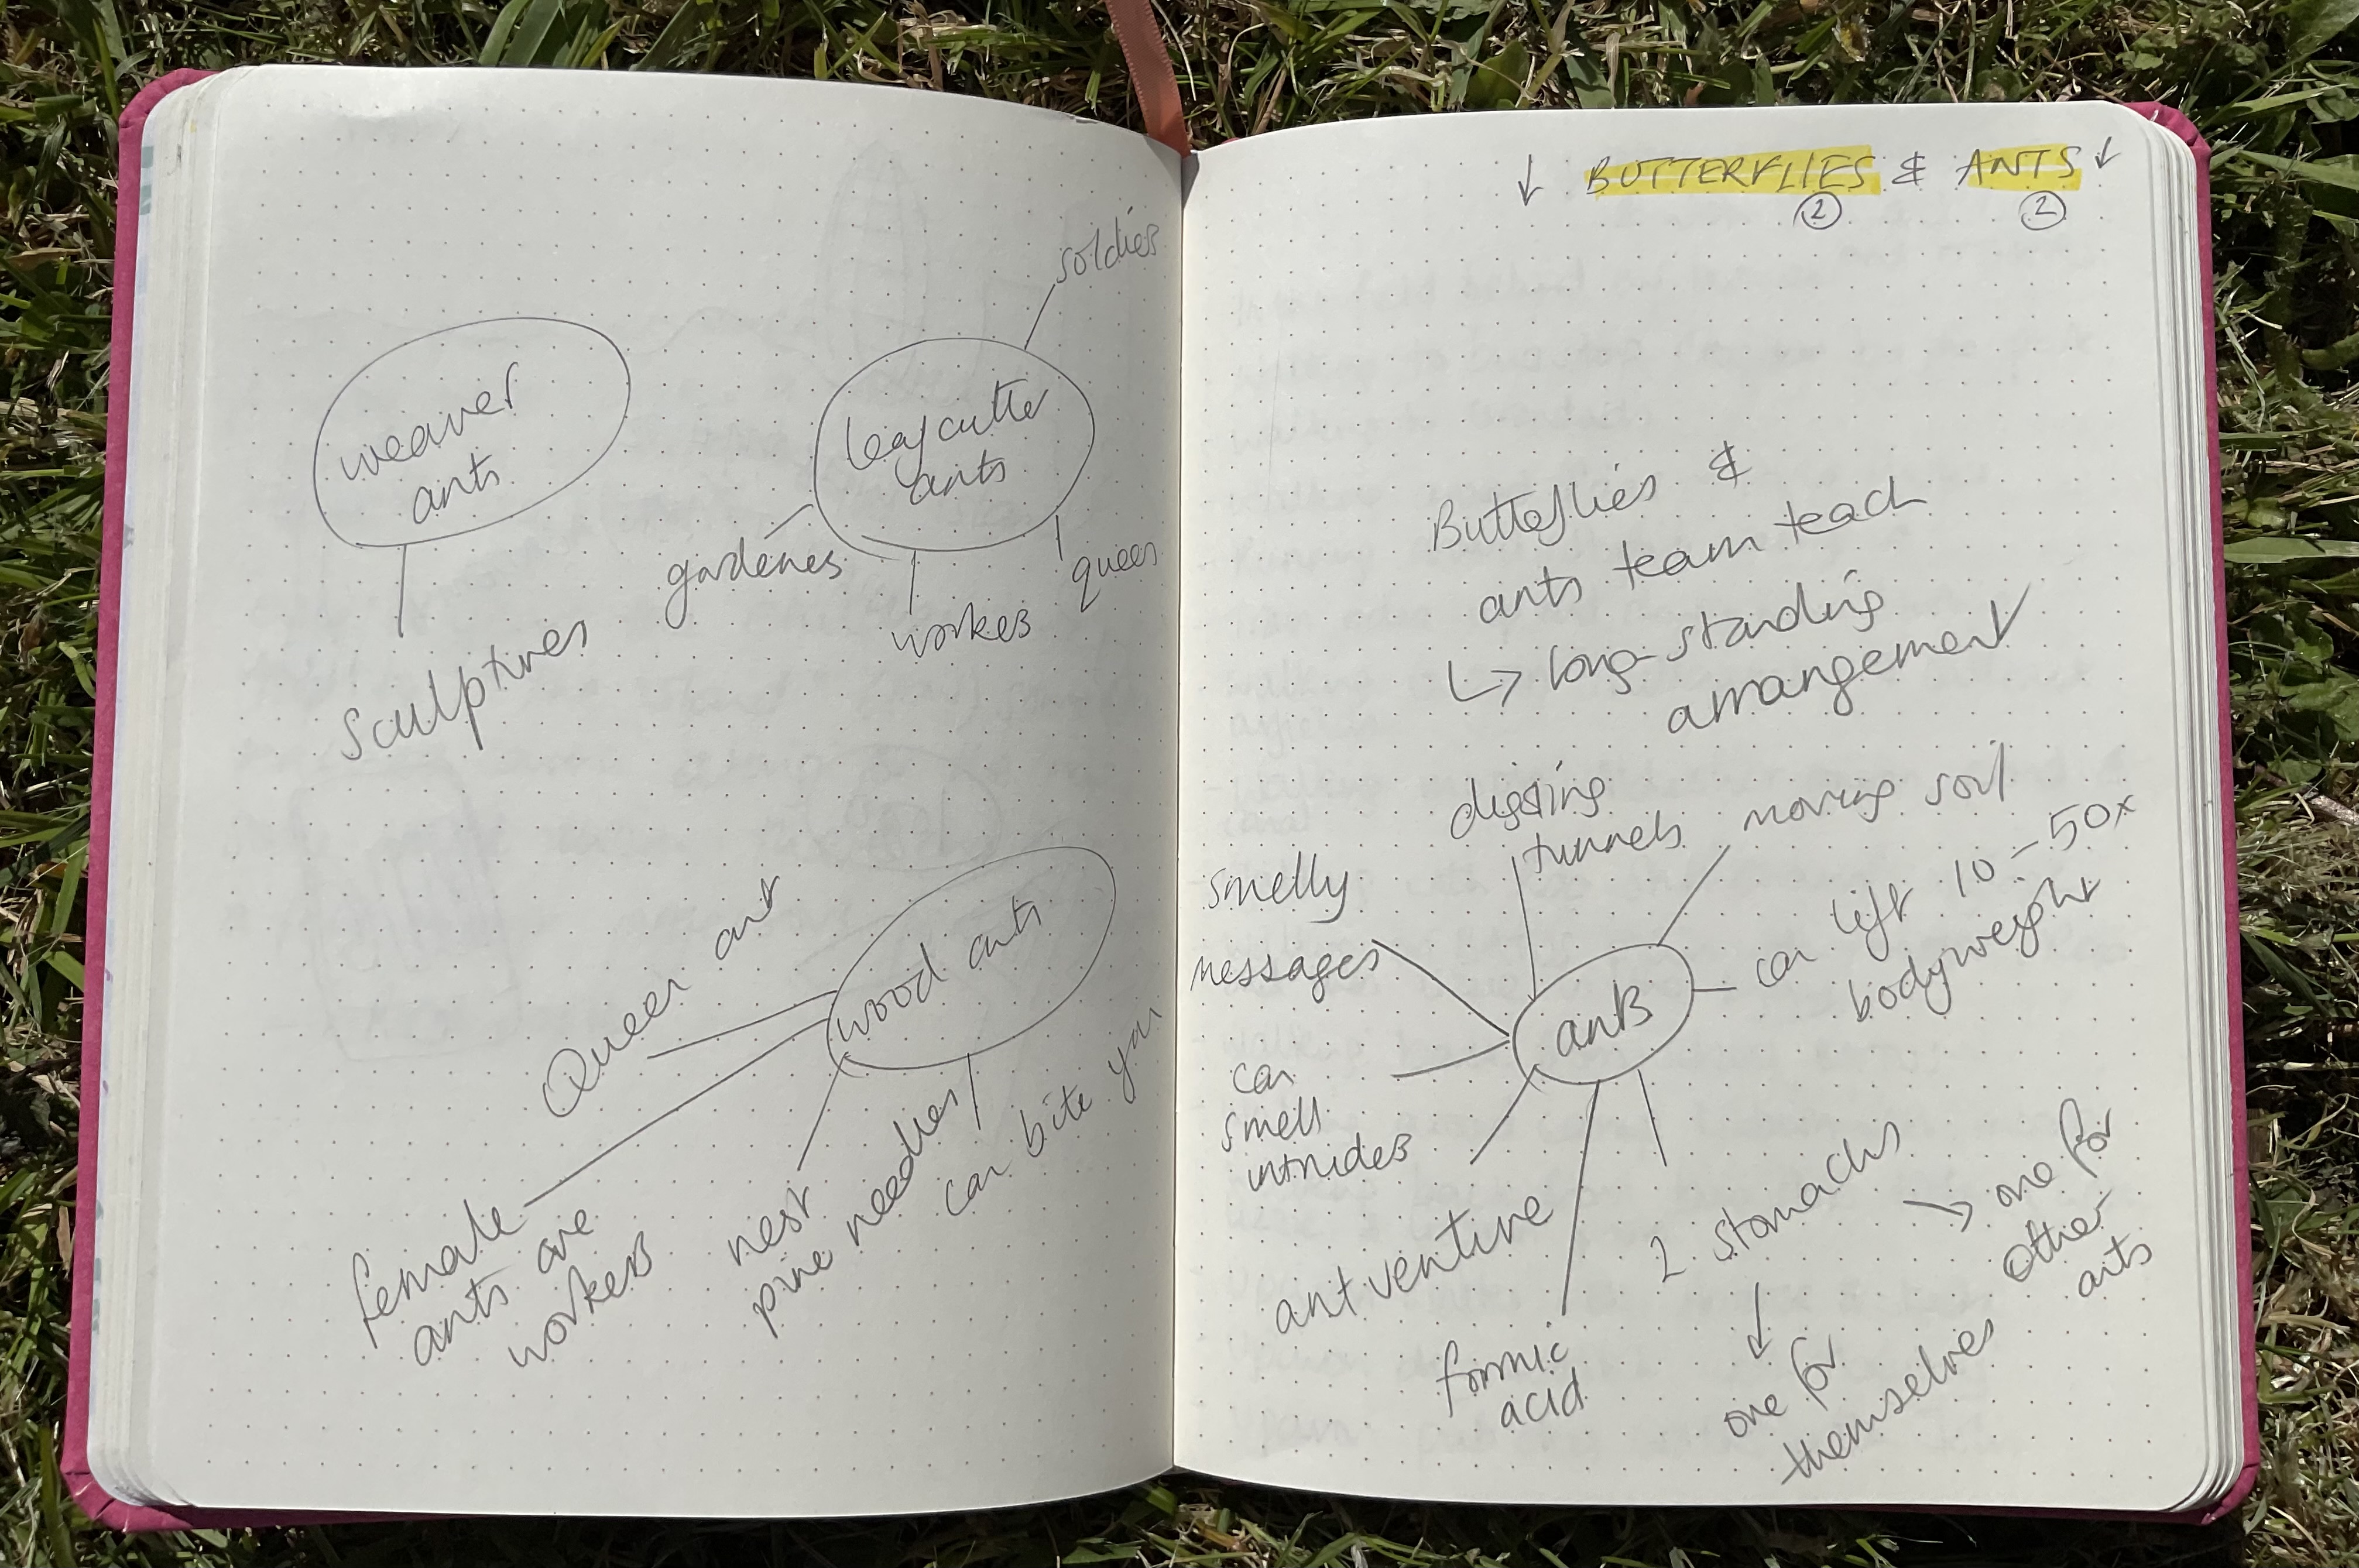 soldiers
weaver
ants
leafcutter
ants
gardeners
workers
queen
sculptures
Queen ant
wood ants
female
ants are
workers
nest
pine needles
can bite you
↓ BUTTERFLIES & ANTS ↓
② ②
Butterflies &
ants team teach
↳ long-standing
arrangement
digging
tunnels
moving soil
smelly
messages
can lift 10-50x
bodyweight
ants
can
smell
intruders
ant venture
formic
acid
2 stomachs
→ one for
other
ants
↓
one for
themselves